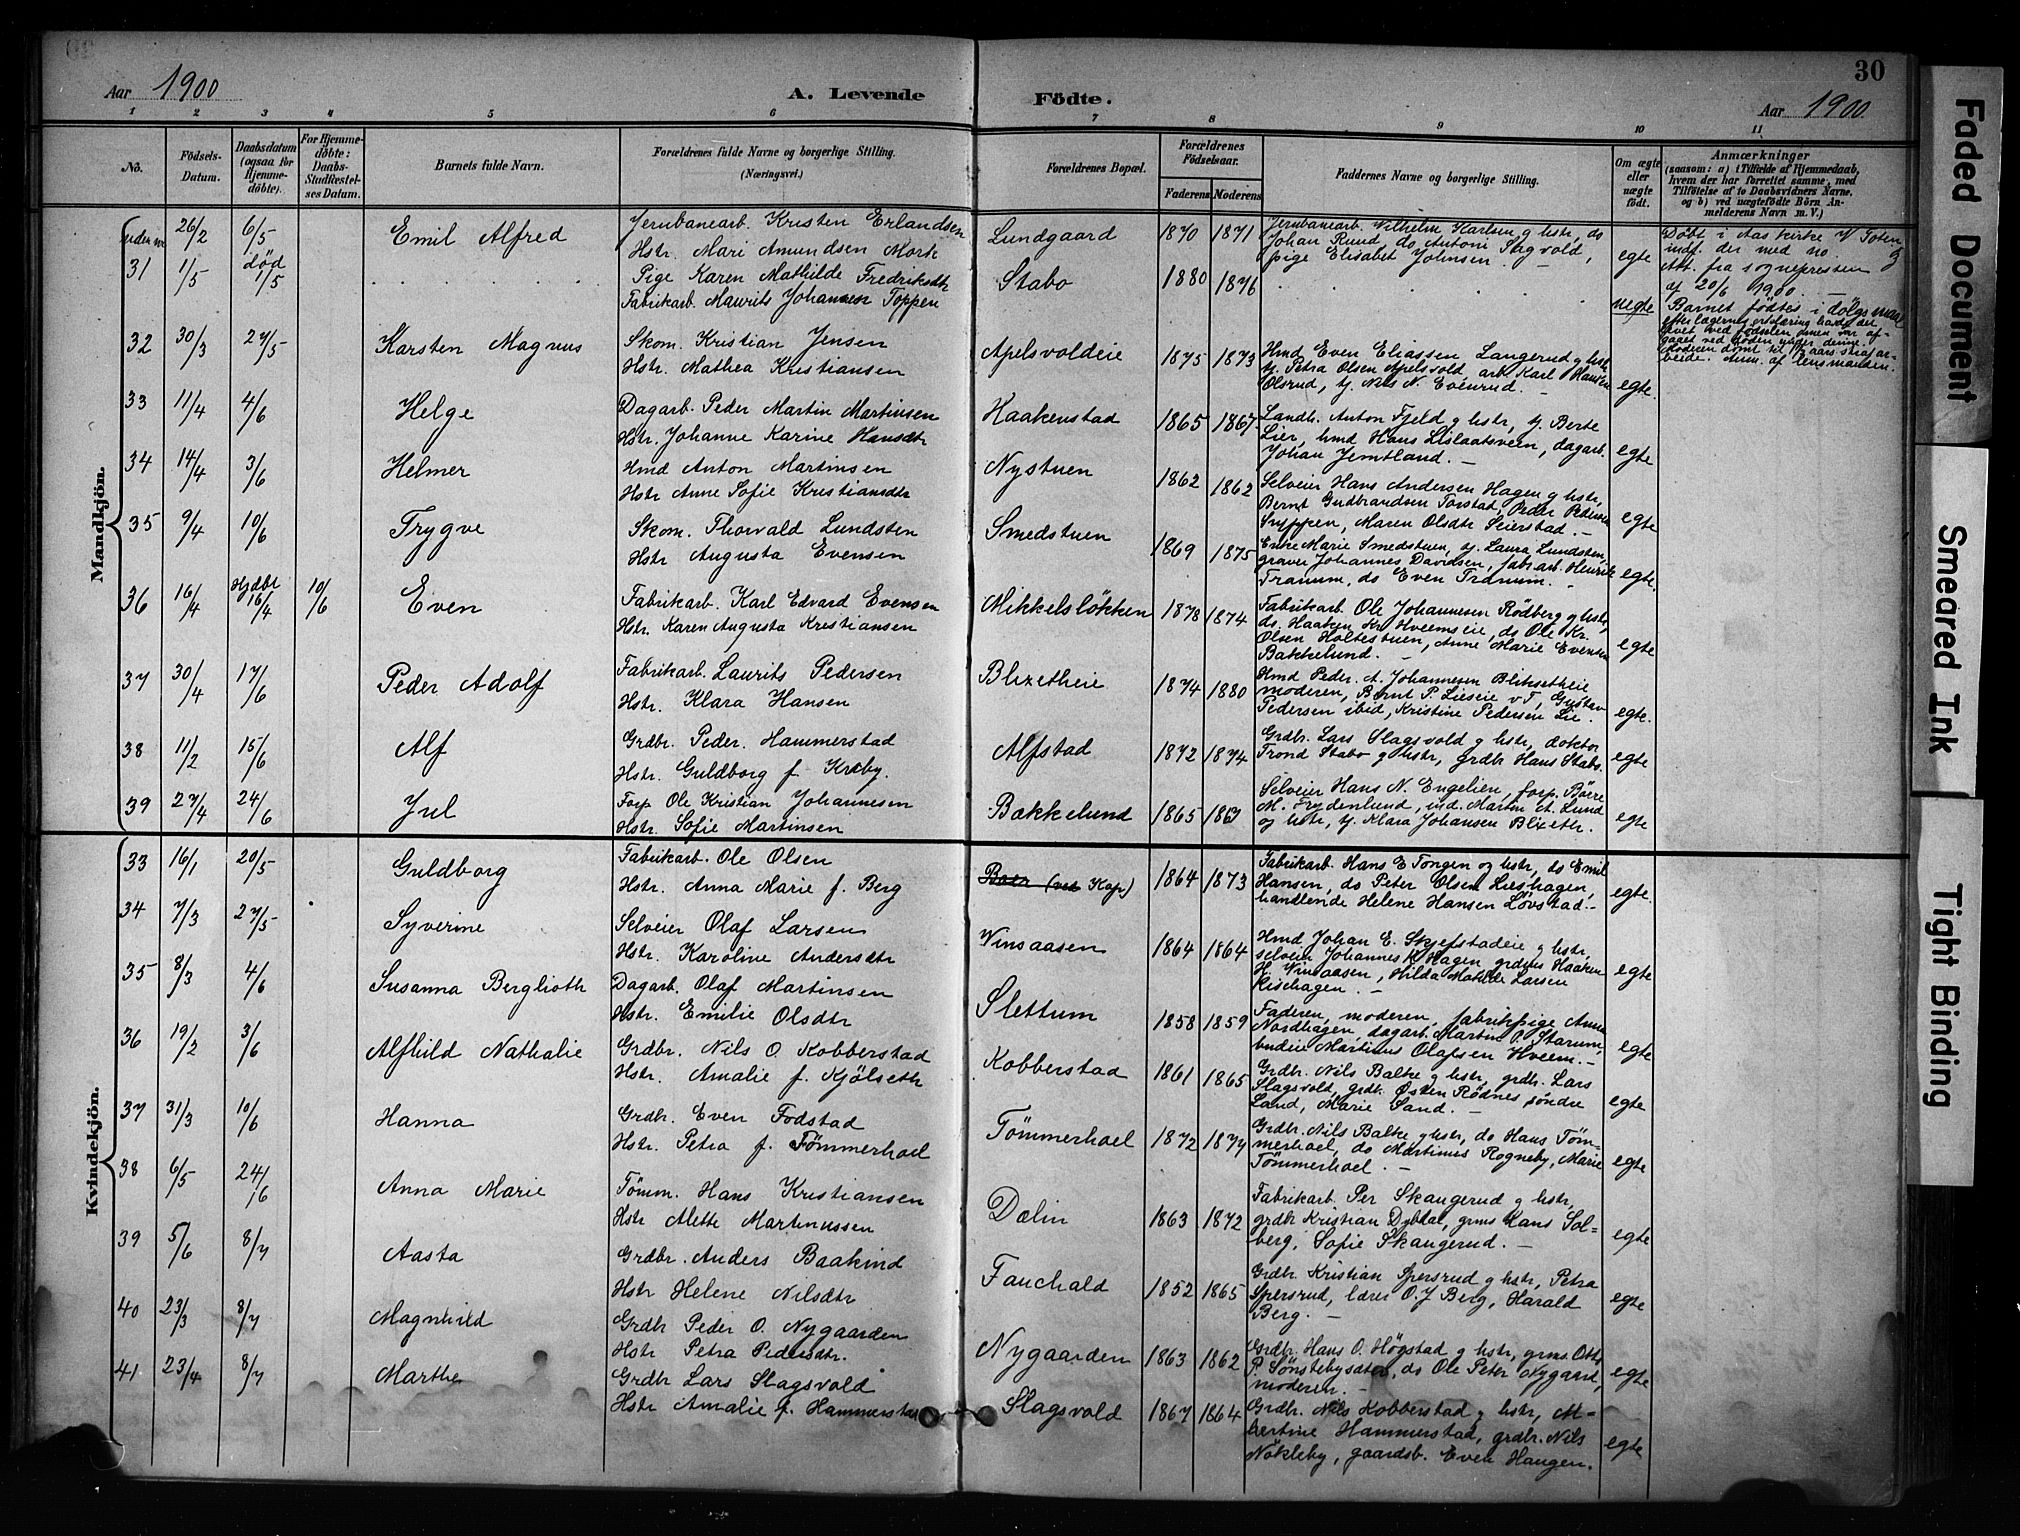 30
Aar 1900 A. Levende Födte. Aar 1900
1 2 3 4 5 6 7 8 9 10 11
No.
Födsels-Datum.
Daabsdatum (ogsaa for Hjemme-döbte).
For Hjemme-döbte: Daabs-Stadfæstel-ses Datum.
Barnets fulde Navn.
Forældrenes fulde Navne og borgerlige Stilling.
(Næringsvei.)
Forældrenes Bopæl.
Forældrenes Födselsaar.
Faderens Moderens
Faddernes Navne og borgerlige Stilling.
Om ægte eller uægte födt.
Anmærkninger
(saasom: a) i Tilfælde af Hjemmedaab,
hvem der har forrettet samme, med
Tilföielse af to Daabsvidners Navne,
og b) ved uægtefödte Börn An-
melderens Navn m. V.)
Mandkjön.
uden no 26/2 6/5 Emil Alfred
Jernbanearb. Kristen Erlandsen
Hstr. Mari Amundsen Mork
Lundgaard 1870 1871
Jernbanearb. Vilhelm Karlsen g hstr, do
Johan Ruud, do Antoni Slagvold,
pige Elisabet Johnsen. egte
Döbt i Aas kirke V Toten
indf. der med no. 9
Att. fra sognepresten
af 20/6 1900.
31 1/5 død 1/5
Pige Karen Mathilde Fredriksdtr
Fabrikarb. Maurits Johansen Toppen
Stabo 1880 1876
uegte
Barnet fødtes i dølgsmaal
efter lægernes erklæring havde det
levet ved fødselen men var af-
gaaet ved døden under denne.
Moderen dømt til 1½ aars straf ar-
beide. Anm. af lensmanden.
32 30/3 27/5 Karsten Magnus
Skom. Kristian Jensen
Hstr. Mathea Kristiansen
Apelsvoldeie 1875 1873
Hmd Even Eliassen Langerud g hstr,
tj. Petra Olsen Apelsvold, arb. Karl Hansen
Olsrud, tj. Nils N. Evenrud. egte.
33 11/4 4/6 Helge
Dagarb. Peder Martin Martinsen
Hstr. Johanne Karine Hansdtr
Haakenstad 1865 1867
Landh. Anton Fjeld g hstr, tj. Berte
Lier, hmd Hans Lislaatsveen, dagarb.
Johan Jemtland. egte
34 14/4 3/6 Helmer
Hmd Anton Martinsen
Hstr Anne Sofie Kristiansdtr
Nystuen 1862 1862
Selveier Hans Andersen Hagen g hstr,
Bernt Gudbrandsen Torstad, Peder Petersen
Snippen, Maren Olsdtr Seierstad. egte
35 9/4 10/6 Trygve
Skom. Thorvald Lundsten
Hstr Augusta Evensen
Smedstuen 1869 1875
Enke Marie Smedstuen, tj. Laura Lundsten,
graver Johannes Davidsen, fabr.arb. Henrik
Tranum, do Even Tranum. egte.
36 16/4 Hjdbt 16/4 10/6 Even
Fabrikarb. Karl Edvard Evensen
Hstr. Karen Augusta Kristiansen
Mikkelsløkken 1878 1874
Fabrikarb Ole Johannesen Rødberg g hstr,
ds. Haaken Kr. Hveemseie, ds Ole Kr.
Olsen Holtestuen, Anne Marie Evensen
Bakkelund. egte
37 30/4 17/6 Peder Adolf
Fabrikarb. Laurits Pedersen
Hstr. Klara Hansen
Blixetheie 1874 1880
Hmd Peder A. Johannesen Bliksetheie
moderen, Bernt P. Lieseie v T, Gustav
Pedersen ibid, Kristine Pedersen Lie. egte.
38 11/2 15/6 Alf
Grdbr. Peder Hammerstad
Hstr. Guldborg f. Kraby.
Alfstad 1872 1874
Grdbr. Lars Slagsvold g hstr, doktor
Trond Stabo g hstr, grdbr Hans Stabo. egte
39 27/4 24/6 Jul
Forp Ole Kristian Johannesen
Hstr. Sofie Martinsen
Bakkelund 1865 1867
Selveier Hans N. Engelien, forp. Børre
M. Frydenlund, ind. Martin A. Lund
og hstr, tj. Klara Johansen Blixeth. egte
Kvindekjön.
33 16/1 20/5 Guldborg
Fabrikarb. Ole Olsen
Hstr. Anna Marie f. Berg
Baer (ved Kap) 1864 1873
Fabrikarb. Hans E Tongen og hstr, do Emil
Hansen, do Peter Olsen Lieshagen,
handlende Helene Hansen Løvstad. egte.
34 7/3 27/5 Syverine
Selveier Olaf Larsen
Hstr. Karoline Andersdtr
Winsaasen 1864 1864
Hmd Johan E. Skjefstadeie g hstr,
selveier Johannes K Hagen, grdms Haaken
H. Winsaasen, Hilda Matilde Larsen
Risehagen. egte
35 8/3 4/6 Susanna Berglioth
Dagarb. Olaf Martinsen
Hstr. Emilie Olsdtr
Slettum 1858 1859
Faderen, moderen, fabrikpige Anna
Nordhagen, dagarb. Martin O. Starum,
budeie Martinus Olafsen Hveem. egte
36 19/2 3/6 Alfhild Nathalie
Grdbr. Nils O. Kobberstad
Hstr. Amalie f. Kjølseth
Kobberstad 1861 1865
Grdbr. Nils Balke g hstr, grdbr. Lars
Slagsvold, grdbr. Østen Rødnes, søndre
Land, Marie Sand. egte
37 31/3 10/6 Hanna
Grdbr. Even Fodstad
Hstr. Petra f. Tömmerhoel
Tömmerhoel 1872 1874
Grdbr. Nils Balke g hstr, do Hans Töm-
merhoel, do Martinus Rogneby, Marie
Tömmerhoel. egte
38 6/5 24/6 Anna Marie
Tömm. Hans Kristiansen
Hstr Alette Martinussen
Dælin 1863 1872
Fabrikarb. Per Skangerud g hstr,
grdbr Kristian Dybdal, grms Hans Sol-
berg, Sofie Skangerud. egte
39 5/6 8/7 Aasta
Grdbr. Anders Baakind
Hstr Helene Nilsdtr
Fauchald 1852 1865
Grdbr. Kristian Spersrud g hstr, Petra
Spersrud, lærer O. J Berg, Harald
Berg. egte
40 23/3 8/7 Magnhild
Grdbr Peder O. Nygaarden
Hstr Petra Pedersdtr.
Nygaarden 1863 1862
Grdbr. Hans O. Høgstad g hstr, grms. Otto
P. Sønstebysæter, do Ole Peter Nygaard,
moderen. egte
41 23/4 8/7 Marthe
Grdbr Lars Slagsvold
Hstr Amalie f. Hammerstad
Slagsvold 1867 1864
Grdbr. Nils Kobberstad g hstr, M-
bertine Hammerstad, grdbr. Nils
Nökleby, gaardsb. Even Haugen. egte
Faded Document
Smeared Ink
Tight Binding